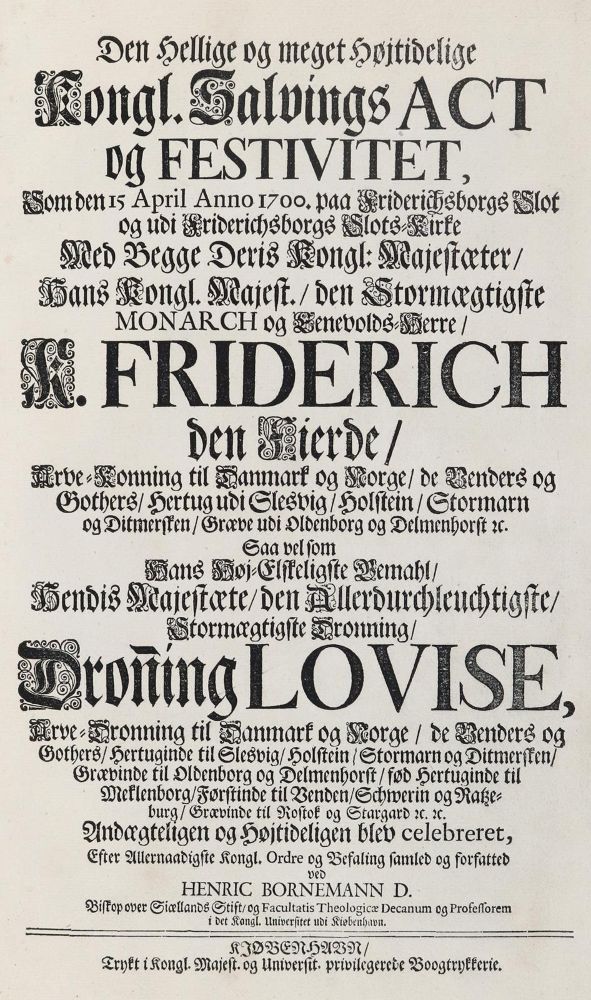 Den Hellige og meget Højtidelige
Kongl. Salvings ACT
og FESTIVITET,
Som den 15 April Anno 1700. paa Friderichsborgs Slot
og udi Friderichsborgs Slots-Kirke
Med Begge Deris Kongl: Majestæter/
Hans Kongl. Majest./ den Stormægtigste
MONARCH og Eenevolds-Herre/
K. FRIDERICH
den Fierde/
Arve-Konning til Danmark og Norge/ de Venders og
Gothers/ Hertug udi Slesvig/ Holstein/ Stormarn
og Ditmersken/ Græve udi Oldenborg og Delmenhorst ꝛc.
Saa vel som
Hans Høj-Elskeligste Gemahl/
Hendis Majestæte/ den Allerdurchleuchtigste/
Stormægtigste Dronning/
Droñing LOVISE,
Arve-Dronning til Danmark og Norge/ de Venders og
Gothers/ Hertuginde til Slesvig/ Holstein/ Stormarn og Ditmersken/
Grævinde til Oldenborg og Delmenhorst/ fød Hertuginde til
Meklenborg/ Førstinde til Venden/ Schwerin og Ratze-
burg/ Grævinde til Rostok og Stargard ꝛc. ꝛc.
Andægteligen og Højtideligen blev celebreret,
Efter Allernaadigste Kongl. Ordre og Befaling samled og forfatted
ved
HENRIC BORNEMANN D.
Biskop over Siællands Stift/ og Facultatis Theologicæ Decanum og Professorem
i det Kongl. Universitet udi Kiøbenhavn.
KJØBENHAVN/
Trykt i Kongl. Majest. og Universit. privilegerede Boogtrykkerie.